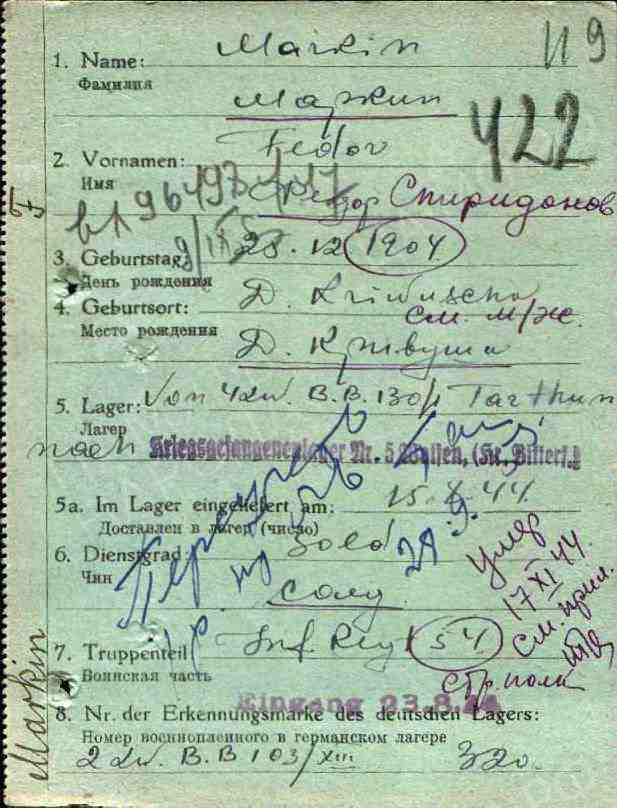 119
1. Name: Markin
Фамилия
Маркин
422
2. Vornamen: Fedor
Имя
Федор Спиридонов
96497
3. Geburtstag: 28.12 1904
День рождения
4. Geburtsort: D. Kriwuscha
см. м/ж.
Место рождения
Д. Кривуша
5. Lager: Von B.B. Tarthun
Лагер
nach Kriegsgefangenenlager Nr. 5 (Kr. Bitterf.)
5a. Im Lager eingeliefert am: 15.X.44
Доставлен в лагер (число)
6. Dienstgrad: Sold
Чин
солд
умер
17 XI 44.
см. прил.
7. Truppenteil Inf Reg 54
Воинская часть
стр полк
Eingang 23.8.44
8. Nr. der Erkennungsmarke des deutschen Lagers:
Номер военнопленного в германском лагере
B.B 103/XIII 320.
F
Markin